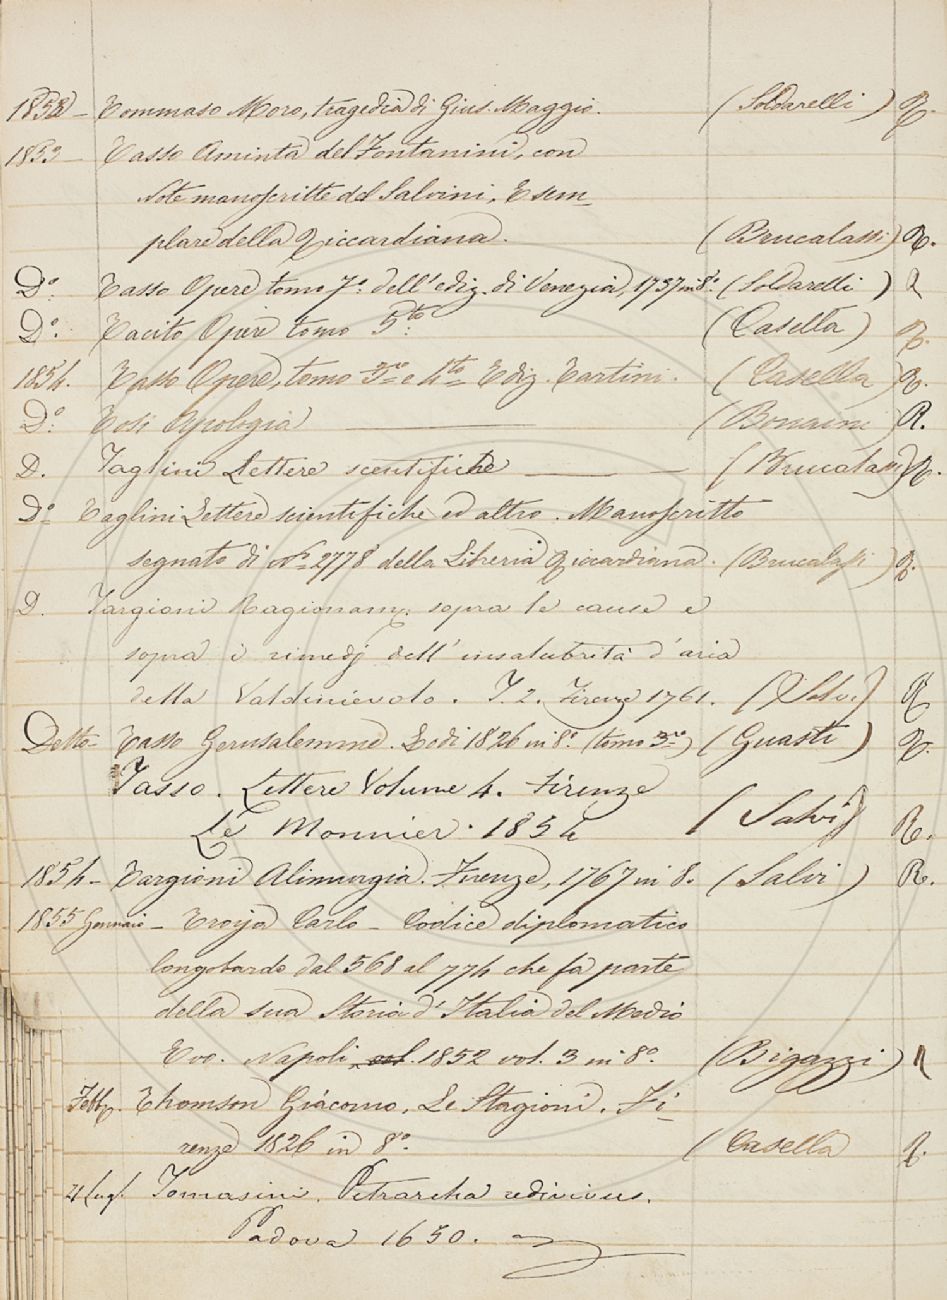 1852 - Tommaso Moro, tragedia di Gius. Maggio. (Soldarelli) R.
1853 - Tasso Aminta del Fontanini, con
Note manoscritte del Salvini, Esem-
plare della Riccardiana. (Brucalassi) R.
Do: Tasso Opere tomo 7o. dell'ediz. di Venezia, 1737 in 8o. (Soldarelli) R
Do: Tacito Opere tomo 5to: (Casella) R.
1854. Tasso Opere, tomo 3zo e 4to Ediz. Tartini. (Casella) R.
Do: Tosi Apologia (Bonaini) R.
D. Taglini Lettere scentifiche (Brucalassi) R.
Do Taglini Lettere scientifiche ed altro. Manoscritto
segnato di No 2778 della Libreria Riccardiana. (Brucalassi) R.
D. Targioni Ragionam. sopra le cause e
sopra i rimedj dell'insalubrità d'aria
della Valdinievole. T. 2. Firenze 1761. (Salvi) R
Detto - Tasso Gerusalemme. Lodi 1826 in 8o. (tomo 3zo) (Guasti) R.
Tasso. Lettere Volume 4. Firenze
Le Monnier. 1854 (Salvi) R.
1854 - Targioni Alimurgia. Firenze, 1767 in 8. (Salvi) R.
1855 Gennaio - Troija Carlo - Codice diplomatico
longobardo dal 568 al 774 che fa parte
della sua Storia d'Italia del Medio
Evo. Napoli 1852 vol. 3 in 8o. (Bigazzi) R
Febb. Thomson Giacomo. Le Stagioni. Fi-
renze 1826 in 8o. (Casella R.
21 lug. Tomasini. Petrarcha redivivus.
Padova 1650.